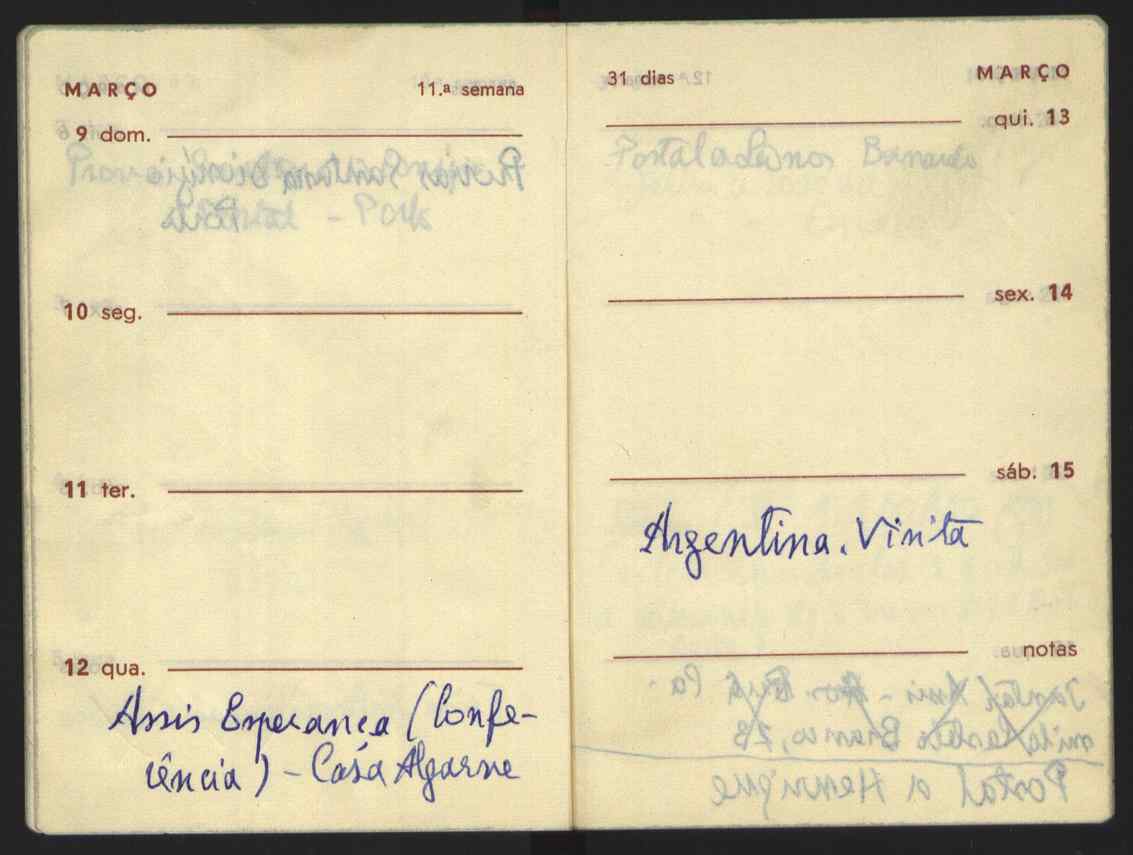 MARÇO 11.ª semana
9 dom.
10 seg.
11 ter.
12 qua.
Assis Esperança (Confe-
rência) - Casa Algarve
31 dias MARÇO
qui. 13
Postal a Lanos Bernardo
sex. 14
sáb. 15
Argentina. Visita
notas
Postal a Henrique